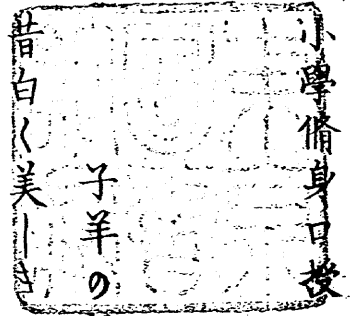 小學脩身口授
子羊の
昔白く美しき